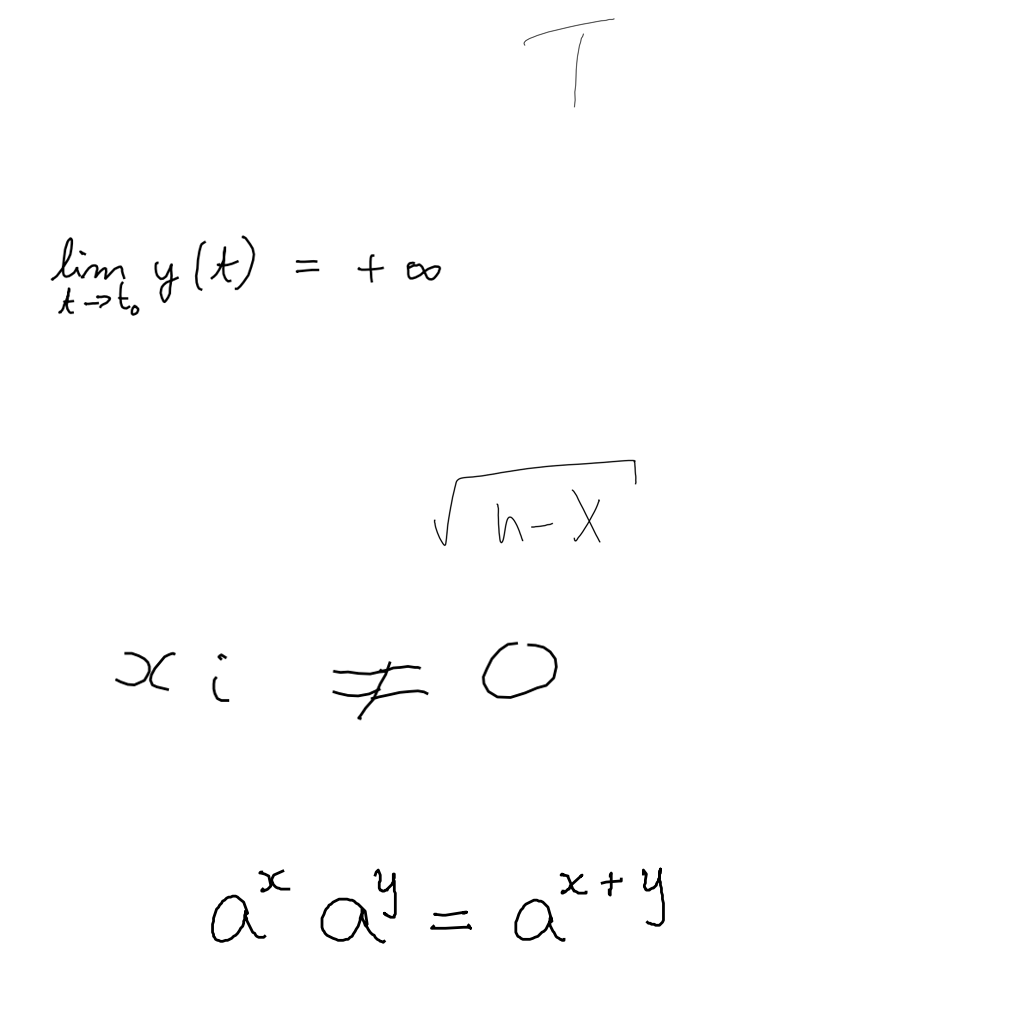 T
lim_{t→t_0} y(t) = +∞
√(n-x)
x_i ≠ 0
a^x a^y = a^{x+y}